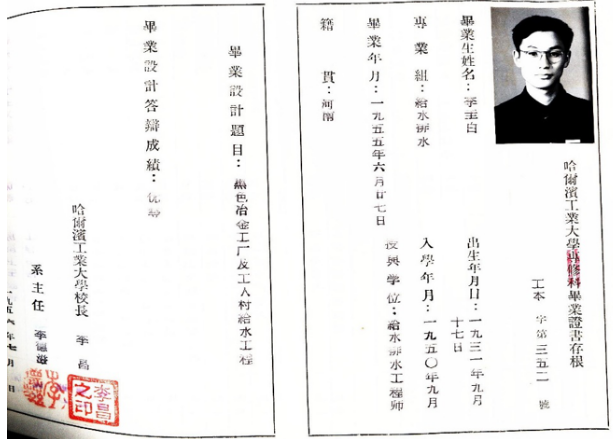 哈爾濱工業大學專修科畢業證書存根
工本 字第三五二 號
畢業生姓名：李圭白
出生年月日：一九三一年九月
十七日
專業組：給水排水
入學年月：一九五〇年九月
畢業年月：一九五五年六月廿七日
授與學位：給水排水工程师
籍 貫：河南
畢業設計題目：黑色冶金工厂及工人村給水工程
畢業設計答辯成績：优等
哈爾濱工業大學校長 李 昌
系主任 李德滋
一九五六年七月 日
李昌
之印